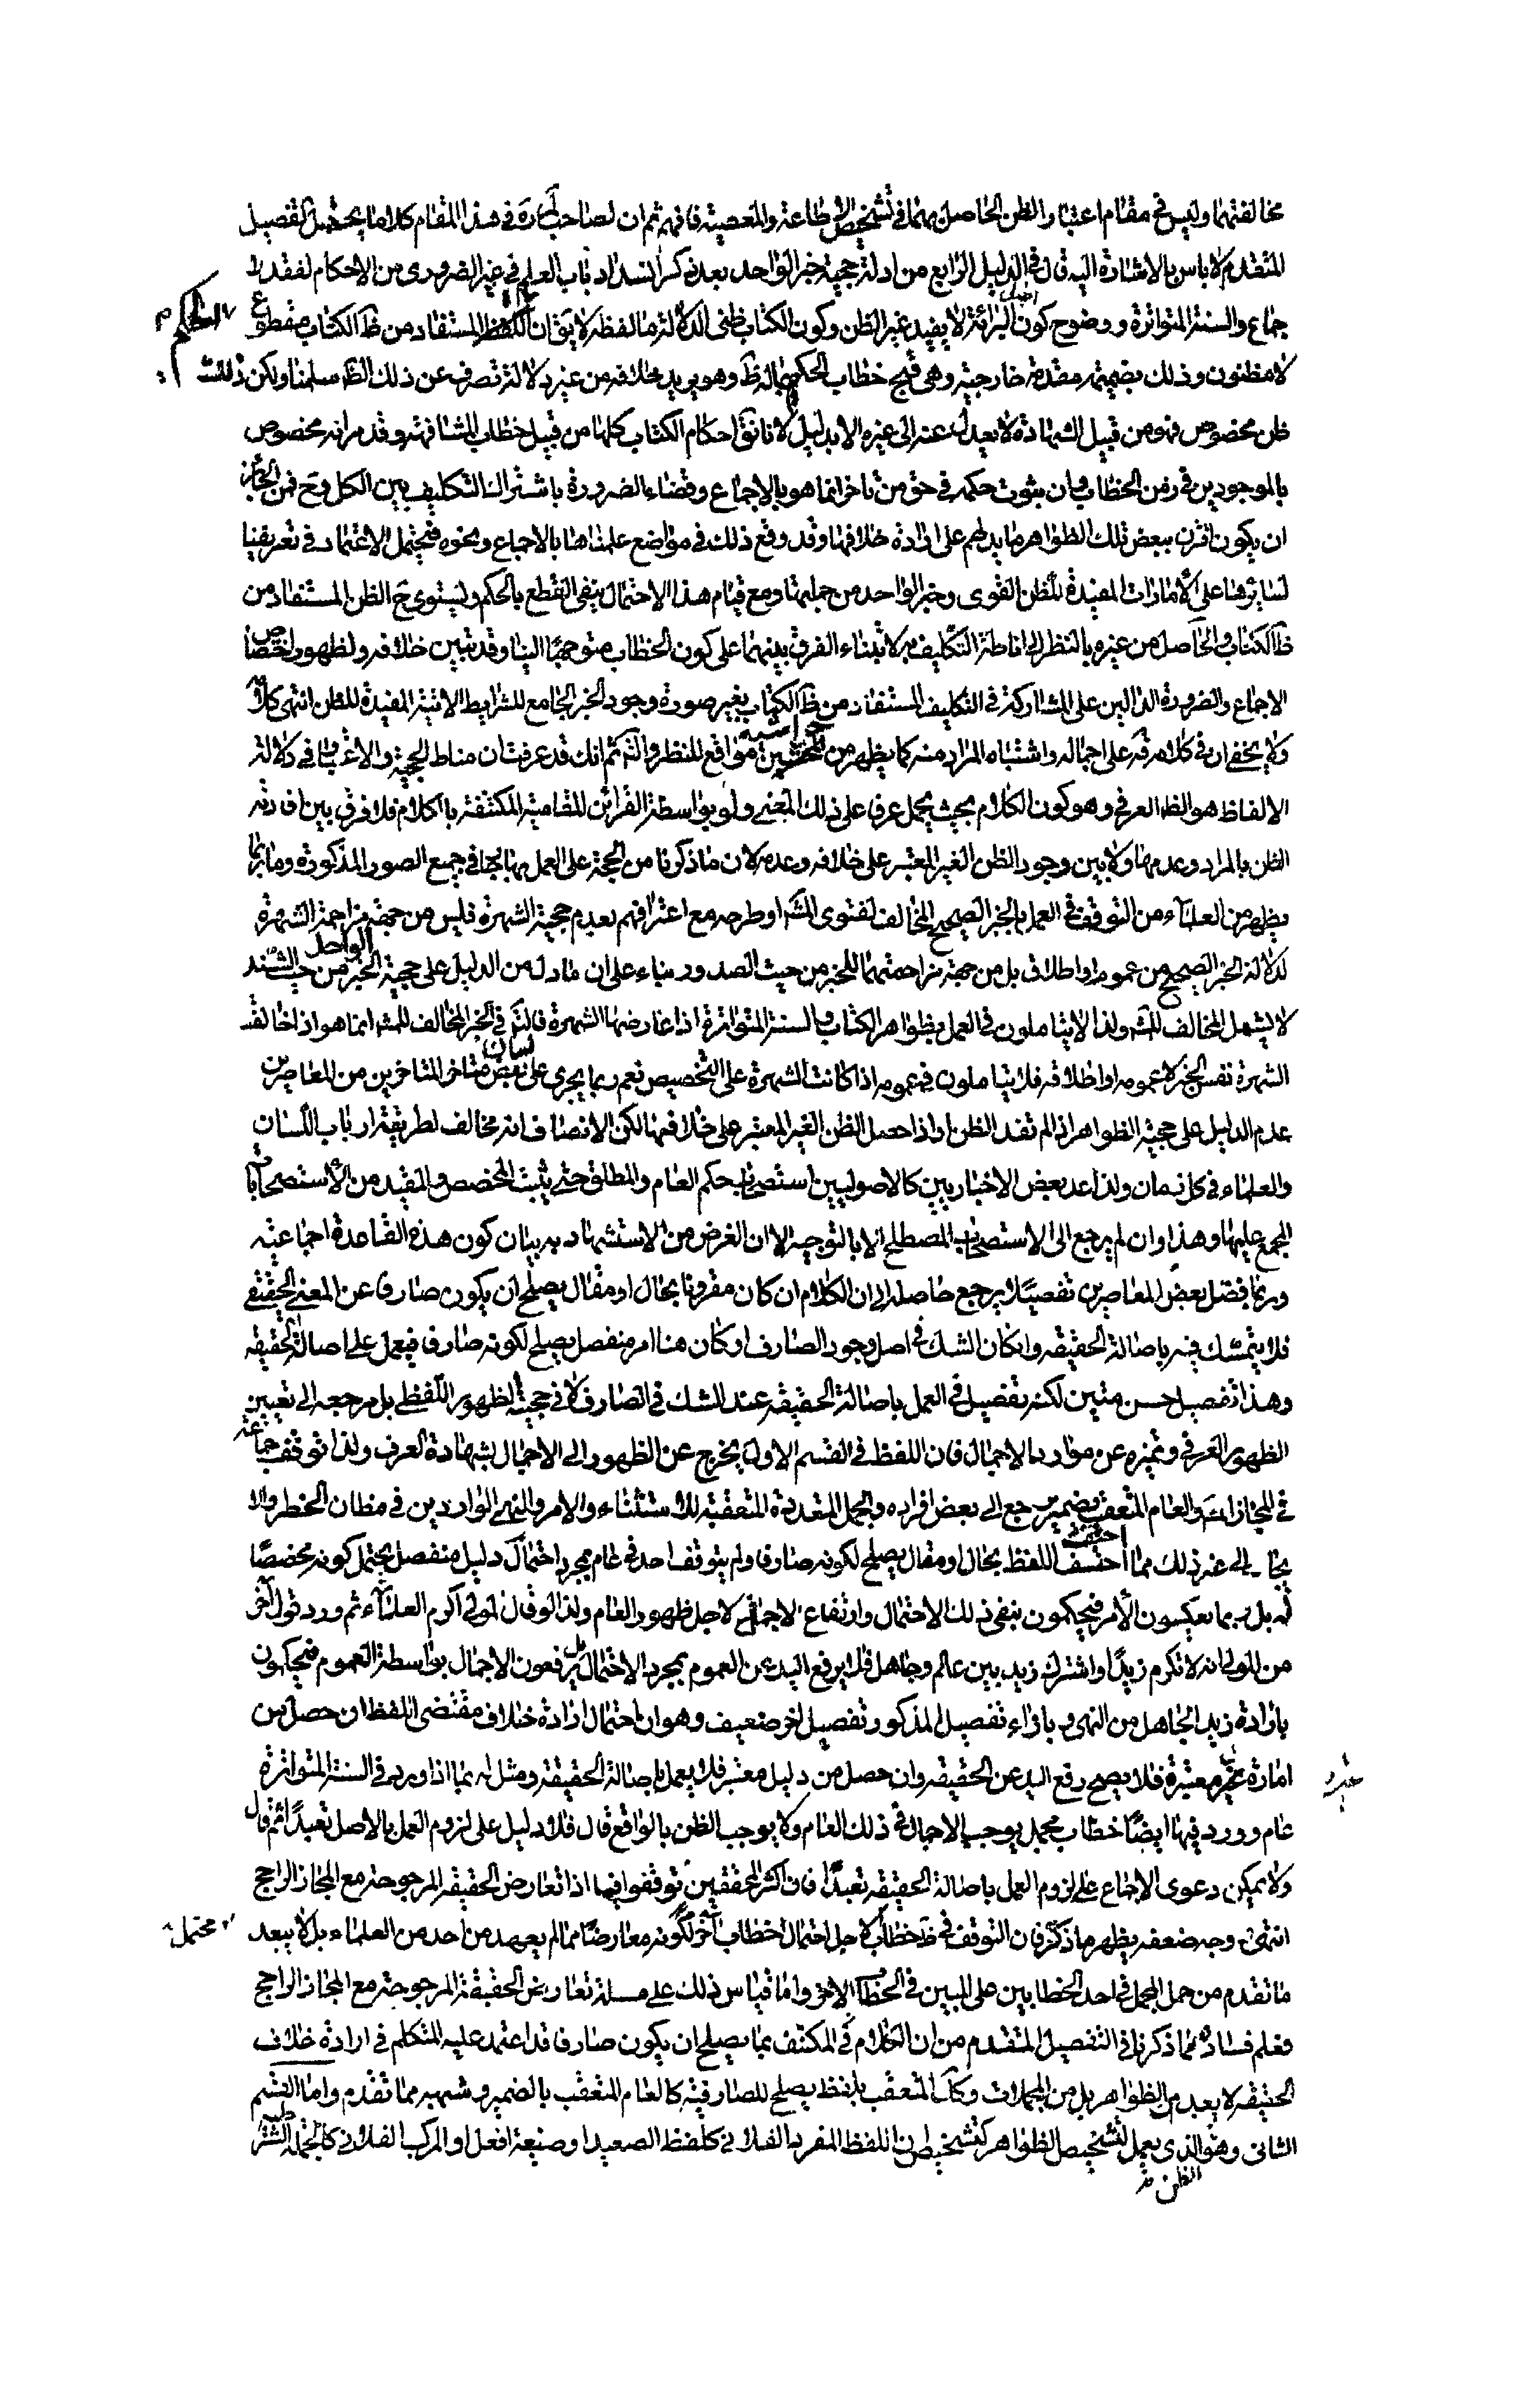 مخالفتهما وليس في مقام اعتبار الظن الحاصل بهما في تشخيص الاطاعة والمعصية فافهم ثم ان لصاحب لم ره في هذا المقام كلاما يحتمل التفصيل
المتقدم لا باس بالاشارة اليه قال في الدليل الرابع من ادلة حجية خبر الواحد بعد ذكر انسداد باب العلم في غير الضروري من الاحكام لفقد الا
جماع والسنة المتواترة ووضوح كون اصل البرائة لا يفيد غير الظن وكون الكتاب ظني الدلالة ما لفظه لا يق ان الحكم المستفاد من ظ الكتاب مقطوع
لا مظنون وذلك بضميمة مقدمة خارجية وهي قبح خطاب الحكيم بما له ظ وهو يريد خلافه من غير دلالة تصرف عن ذلك الظ سلمنا ولكن ذلك
ظن مخصوص فهو من قبيل الشهادة لا يعدل عنه الى غيره الا بدليل لانا نق احكام الكتاب كلها من قبيل خطاب المشافهة وقد مر انه مخصوص
بالموجودين في زمن الخطاب وان ثبوت حكمه في حق من تاخر انما هو بالاجماع وقضاء الضرورة باشتراك التكليف بين الكل وح فمن الجائز
ان يكون اقترن ببعض تلك الظواهر ما يدلهم على ارادة خلافها وقد وقع ذلك في مواضع علمناها بالاجماع ونحوه فيحتمل الاعتماد في تعريفنا
لسائرها على الامارات المفيدة للظن القوى وخبر الواحد من جملتها ومع قيام هذا الاحتمال ينفي القطع بالحكم وليستوي ح الظن المستفاد من
ظ الكتاب والحاصل من غيره بالنظر الى اناطة التكليف به لابتناء الفرق بينهما على كون الخطاب متوجها الينا وقد تبين خلافه ولظهور اختصاص
الاجماع والضرورة الدالين على المشاركة في التكليف المستفاد من ظ الكتاب بغير صورة وجود الخبر الجامع للشرايط الاتية المفيدة للظن انتهى كلامه
ولا يخفى ان في كلامه قه على اجماله واشتباه المراد منه كما يظهر من حواشيه مواقع للنظر والت ثم انك قد عرفت ان مناط الحجية والاعتبار في دلالة
الالفاظ هو الظ العرفي وهو كون الكلام بحيث يحمل عرفا على ذلك المعنى ولو بواسطة القرائن المقامية المكتنفة بالكلام فلا فرق بين افادته
الظن بالمراد وعدمها ولا بين وجود الظن الغير المعتبر على خلافه وعدمه لان ما ذكرنا من الحجة على العمل بها جار في جميع الصور المذكورة وما ربما
يظهر من العلماء من التوقف في العمل بالخبر الصحيح المخالف لفتوى المش او طرحه مع اعترافهم بعدم حجية الشهرة فليس من جهة مزاحمة الشهرة
لدلالة الخبر الصحيح من عموم او اطلاق بل من جهة مزاحمتها للخبر من حيث الصدور بناء على ان ما دل من الدليل على حجية الخبر الواحد من حيث السند
لا يشمل المخالف للمش ولذا لا يتاملون في العمل بظواهر الكتاب والسنة المتواترة اذا عارضها الشهرة فالت في الخبر المخالف للمش انما هو اذا خالفت
الشهرة نفس الخبر لا عمومه او اطلاقه فلا يتاملون في عمومه اذا كانت الشهرة على التخصيص نعم ربما يجري على لسان بعض متاخر المتاخرين من المعاصرين
عدم الدليل على حجية الظواهر اذا لم تفد الظن او اذا حصل الظن الغير المعتبر على خلافها لكن الانصاف انه مخالف لطريقة ارباب اللسان
والعلماء في كل زمان ولذا عد بعض الاخباريين كالاصوليين استصحاب حكم العام والمطلق حتى يثبت المخصص والمقيد من الاستصحابات
المجمع عليها وهذا وان لم يرجع الى الاستصحاب المصطلح الا بالتوجيه الا ان الغرض من الاستشهاد به بيان كون هذه القاعدة اجماعية
وربما فصل بعض المعاصرين تفصيلا يرجع حاصله الى ان الكلام ان كان مقرونا بحال او مقال يصلح ان يكون صارفا عن المعنى الحقيقي
فلا يتمسك فيه باصالة الحقيقة وان كان الشك في اصل وجود الصارف او كان هنا امر منفصل يصلح لكونه صارفا فيعمل على اصالة الحقيقة
وهذا تفصيل حسن متين لكنه تفصيل في العمل باصالة الحقيقة عند الشك في الصارف لا في حجية الظهور اللفظي بل مرجعه الى تعيين
الظهور العرفي وتميزه عن موارد الاجمال فان اللفظ في القسم الاول يخرج عن الظهور الى الاجمال بشهادة العرف ولذا توقف جماعة
في المجاز المش والعام المتعقب بضمير يرجع الى بعض افراده والجمل المتعددة المتعقبة للاستثناء والامر والنهي الواردين في مظان الحظر والا
يجاب الى غير ذلك مما احتف اللفظ بحال او مقال يصلح لكونه صارفا ولم يتوقف احد في عام بمجرد احتمال دليل منفصل يحتمل كونه مخصصا
له بل ربما يعكسون الامر فيحكمون بنفي ذلك الاحتمال وارتفاع الاجمال لاجل ظهور العام ولذا لو قال المولى اكرم العلماء ثم ورد قول اخر
من المولى انه لا تكرم زيدا واشترك زيد بين عالم وجاهل فلا يرفع اليد عن العموم بمجرد الاحتمال بل يرفعون الاجمال بواسطة العموم فيحكمون
بارادة زيد الجاهل من النهي وبازاء تفصيل المذكور تفصيل اخر ضعيف وهو ان احتمال ارادة خلاف مقتضى اللفظ ان حصل من
امارة غير معتبرة فلا يصح رفع اليد عن الحقيقة وان حصل من دليل معتبر فلا يعمل باصالة الحقيقة ومثل له بما اذا ورد في السنة المتواترة
عام وورد فيها ايضا خطاب مجمل يوجب الاجمال في ذلك العام ولا يوجب الظن بالواقع قال فلا دليل على لزوم العمل بالاصل تعبدا ثم قال
ولا يمكن دعوى الاجماع على لزوم العمل باصالة الحقيقة تعبدا فان اكثر المحققين توقفوا فيما اذا تعارض الحقيقة المرجوحة مع المجاز الراجح
انتهى ووجه ضعفه يظهر مما ذكر فان التوقف في ظ خطاب لاجل اجمال خطاب اخر لكونه معارضا مما لم يعهد من احد من العلماء بل لا يبعد محتمل
ما تقدم من حمل المجمل في احد الخطابين على المبين في الخطاب الاخر واما قياس ذلك على مسئلة تعارض الحقيقة المرجوحة مع المجاز الراجح
فعلم فساده مما ذكرنا في التفصيل المتقدم من ان الكلام في المكتنف بما يصلح ان يكون صارفا قد اعتمد عليه المتكلم في ارادة خلاف
الحقيقة لا يعد من الظواهر بل من المجملات وكك المتعقب بلفظ يصلح للصارفية كالعام المتعقب بالضمير وشبهه مما تقدم واما القسم
الثاني وهو الذي يعمل لتشخيص الظواهر كتشخيص ان اللفظ المفرد الفلاني كلفظ الصعيد او صيغة افعل او المركب الفلاني كالجملة الشرطية
الظن